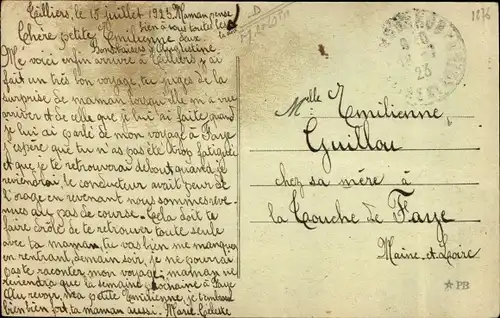 Tilliers, le 15 juillet 1923. Maman pense
bien à vous toutes les
Chère petite Emilienne deux
Me voici enfin arrivée à Tilliers, j'ai
fait un très bon voyage, tu juges de la
surprise de maman lorsqu'elle m'a vu
arriver et de elle que je lui ai faite quand
je lui ai parlé de mon voyage à Faye
j'espère que tu n'as pas été trop fatiguée
et que je te retrouverai debout quand je
reviendrai le conducteur avait peur de
l'orage en revenant nous sommes reve-
nues au pas de course. Cela doit te
faire drôle de te retrouver toute seule
avec ta maman, tu vas bien me manquer
en rentrant, demain soir, je ne pourrai
pas te raconter mon voyage. maman ne
reviendra que la semaine prochaine à Faye
Au revoir, ma petite Emilienne, je t'embrasse
bien bien fort, ta maman aussi. Marie
Mlle Emilienne
Guillou
chez sa mère à
la Touche de Faye
Maine-et-Loire
23
1876
PB